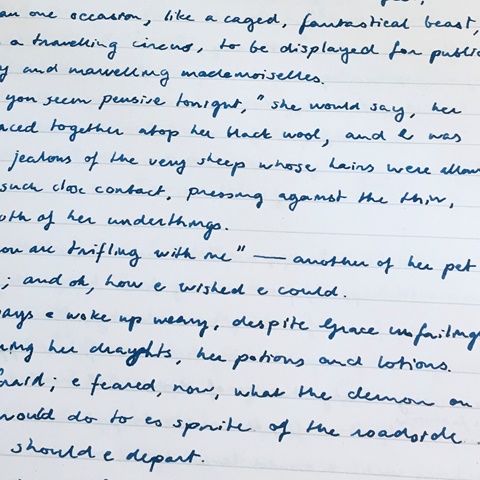 an one occasion, like a caged, fantastical beast,
a travelling circus, to be displayed for public
y and marvelling mademoiselles.
you seem pensive tonight," she would say, her
aced together atop her black wool, and e was
jealous of the very sheep whose hairs were allow
such close contact, pressing against the thin,
oth of her underthings.
ou are trifling with me" — another of her pet
; and oh, how e wished e could.
ays e woke up weary, despite Grace unfailing
ing her draughts, her potions and lotions.
fraid; e feared, now, what the demon on
would do to es sprite of the roadside
should e depart.